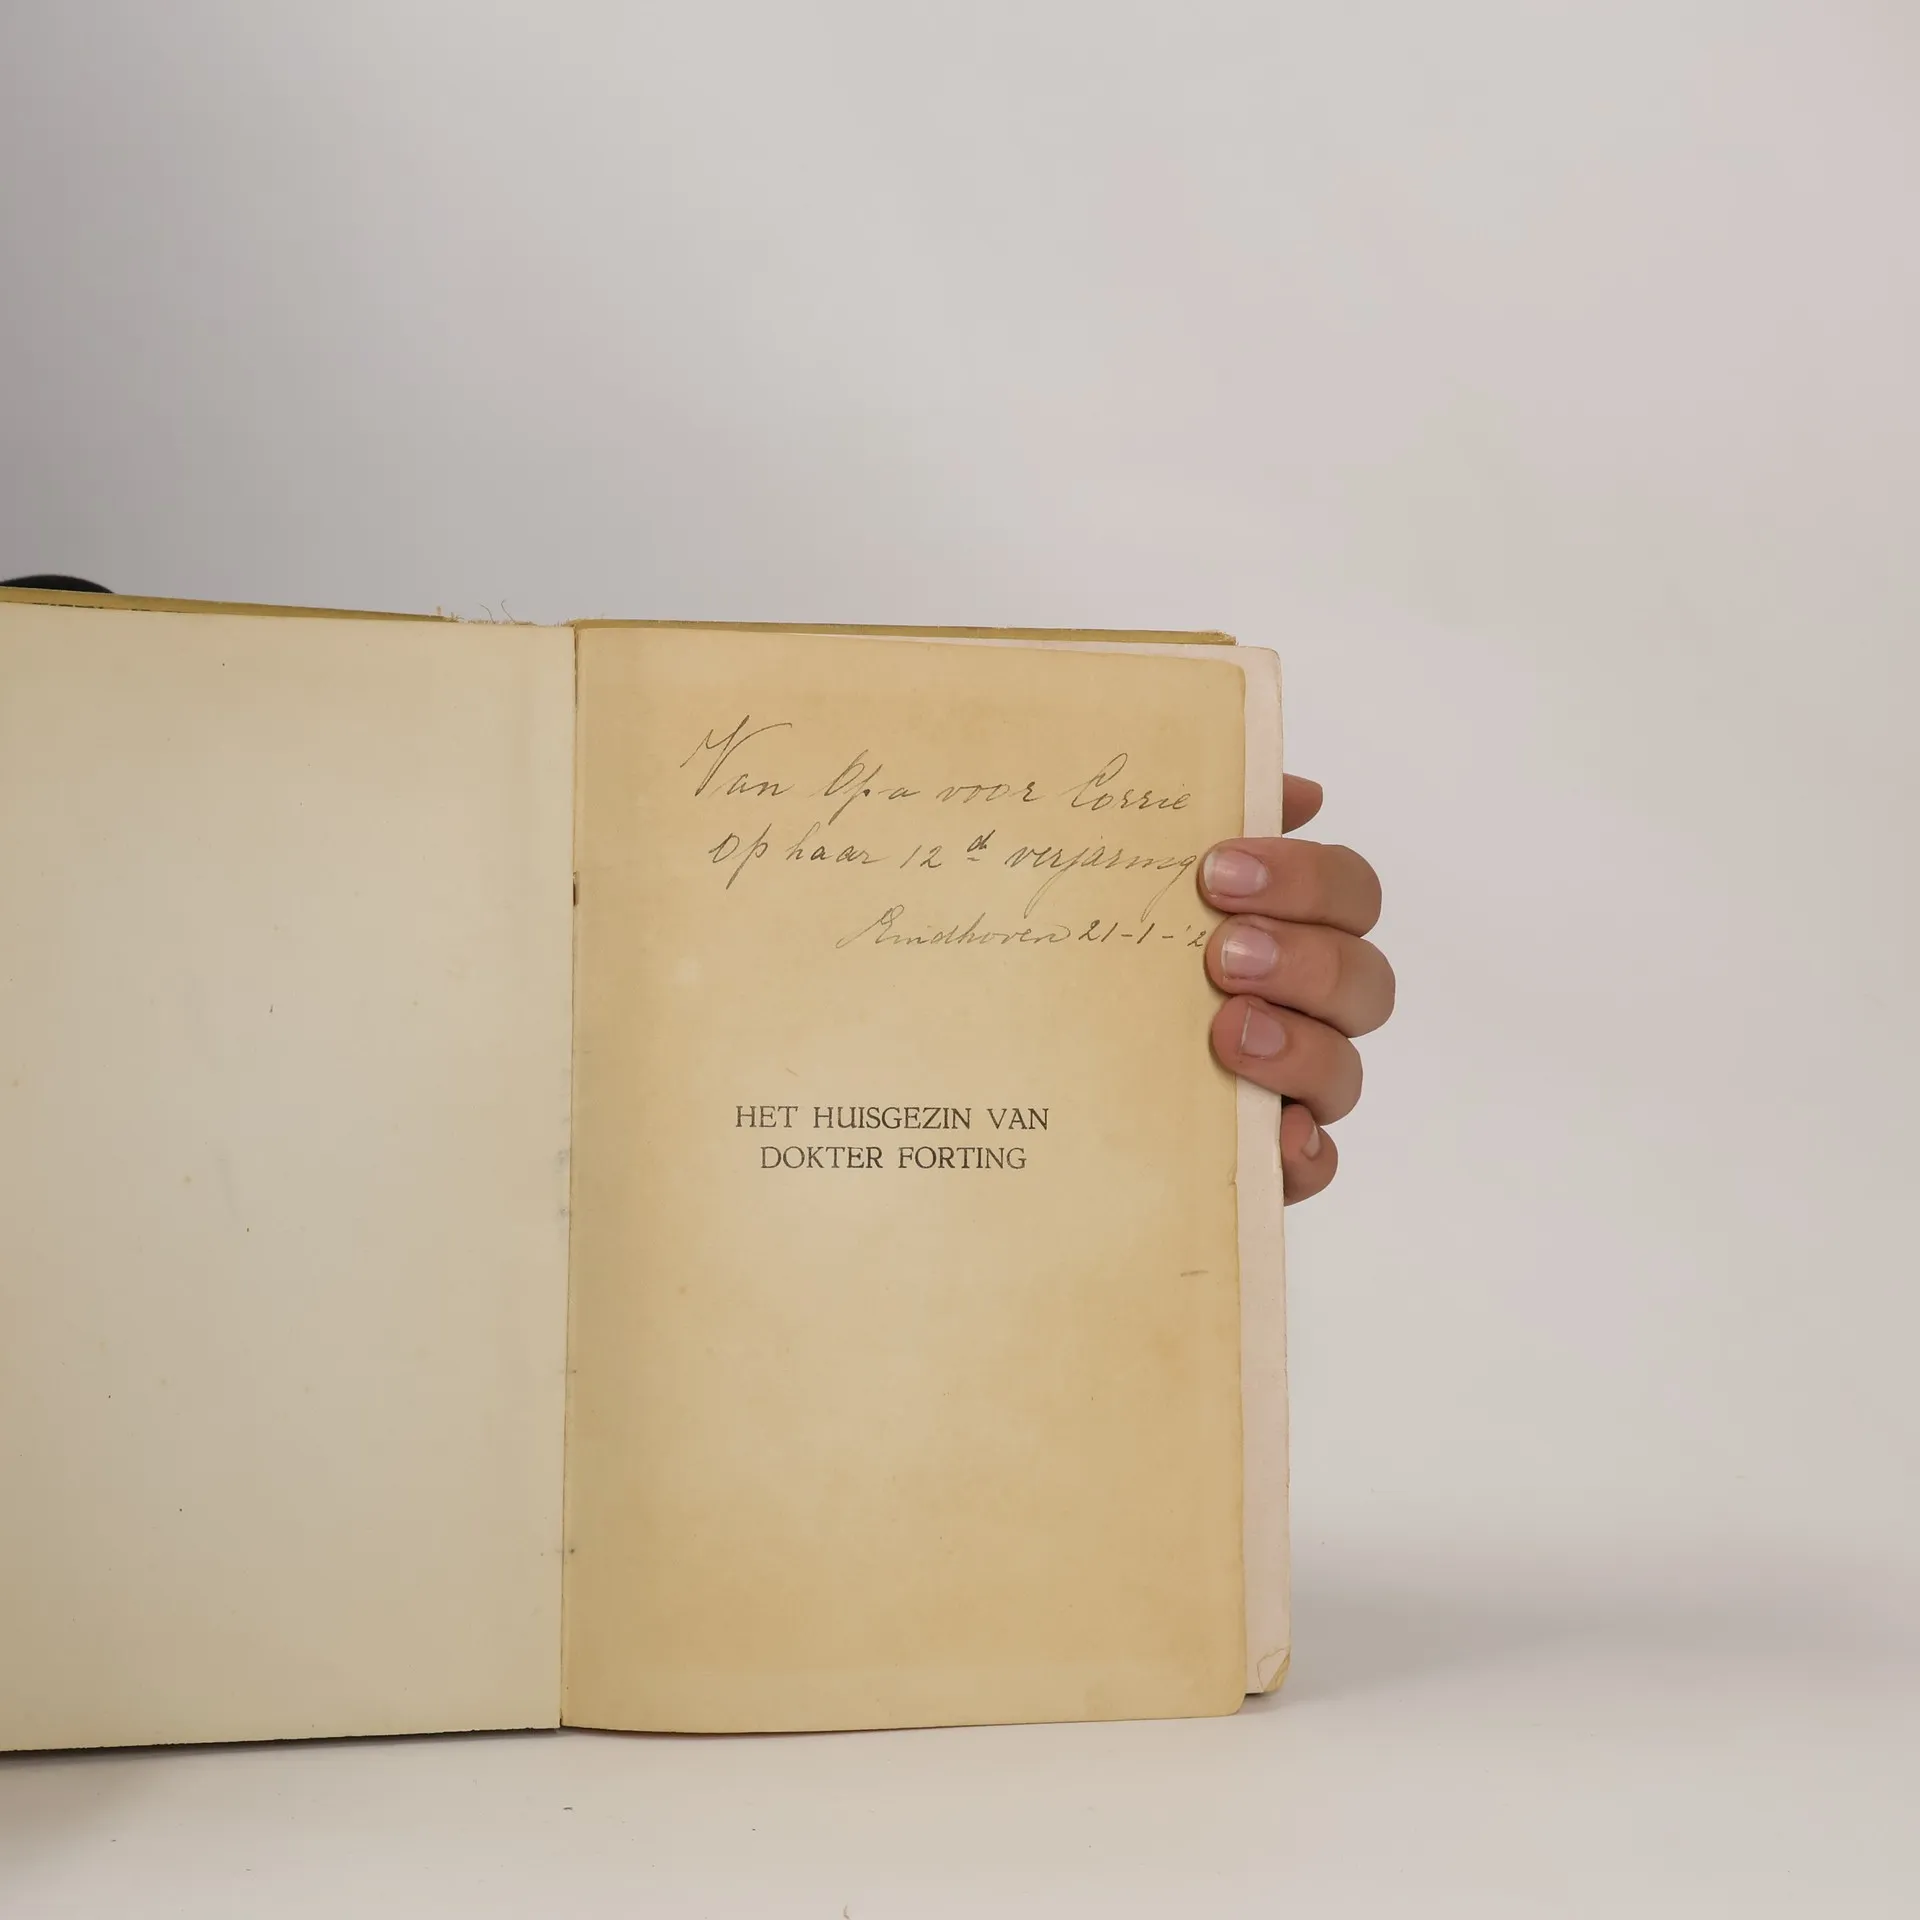 Van Opa voor Corrie
Op haar 12de verjaring
Eindhoven 21-1-'2
HET HUISGEZIN VAN
DOKTER FORTING